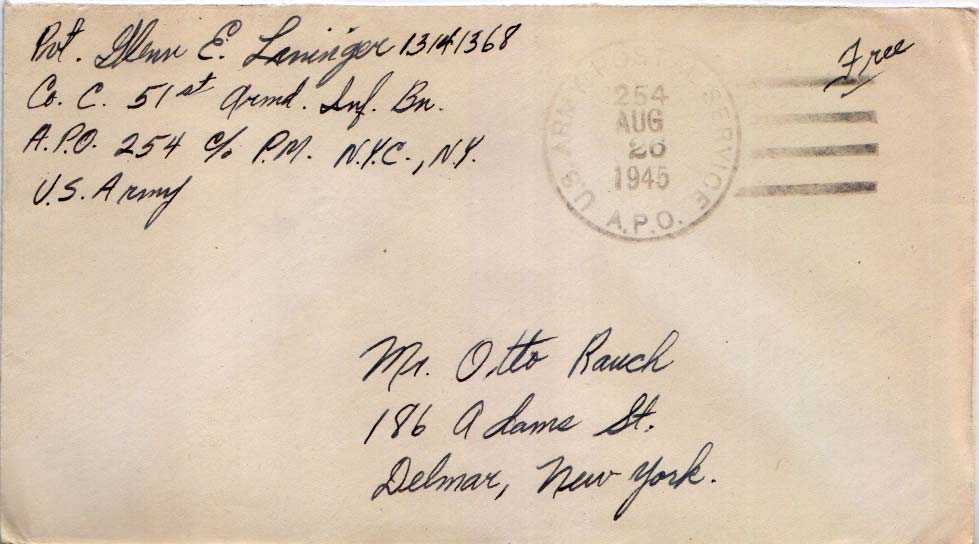 Pvt. Glenn E. Leninger 13141368
Co. C. 51st Armd. Inf. Bn.
A.P.O. 254 c/o P.M. N.Y.C., N.Y.
U.S. Army
Free
U.S. ARMY POSTAL SERVICE
254
AUG
26
1945
A.P.O.
Mr. Otto Rauch
186 Adams St.
Delmar, New York.